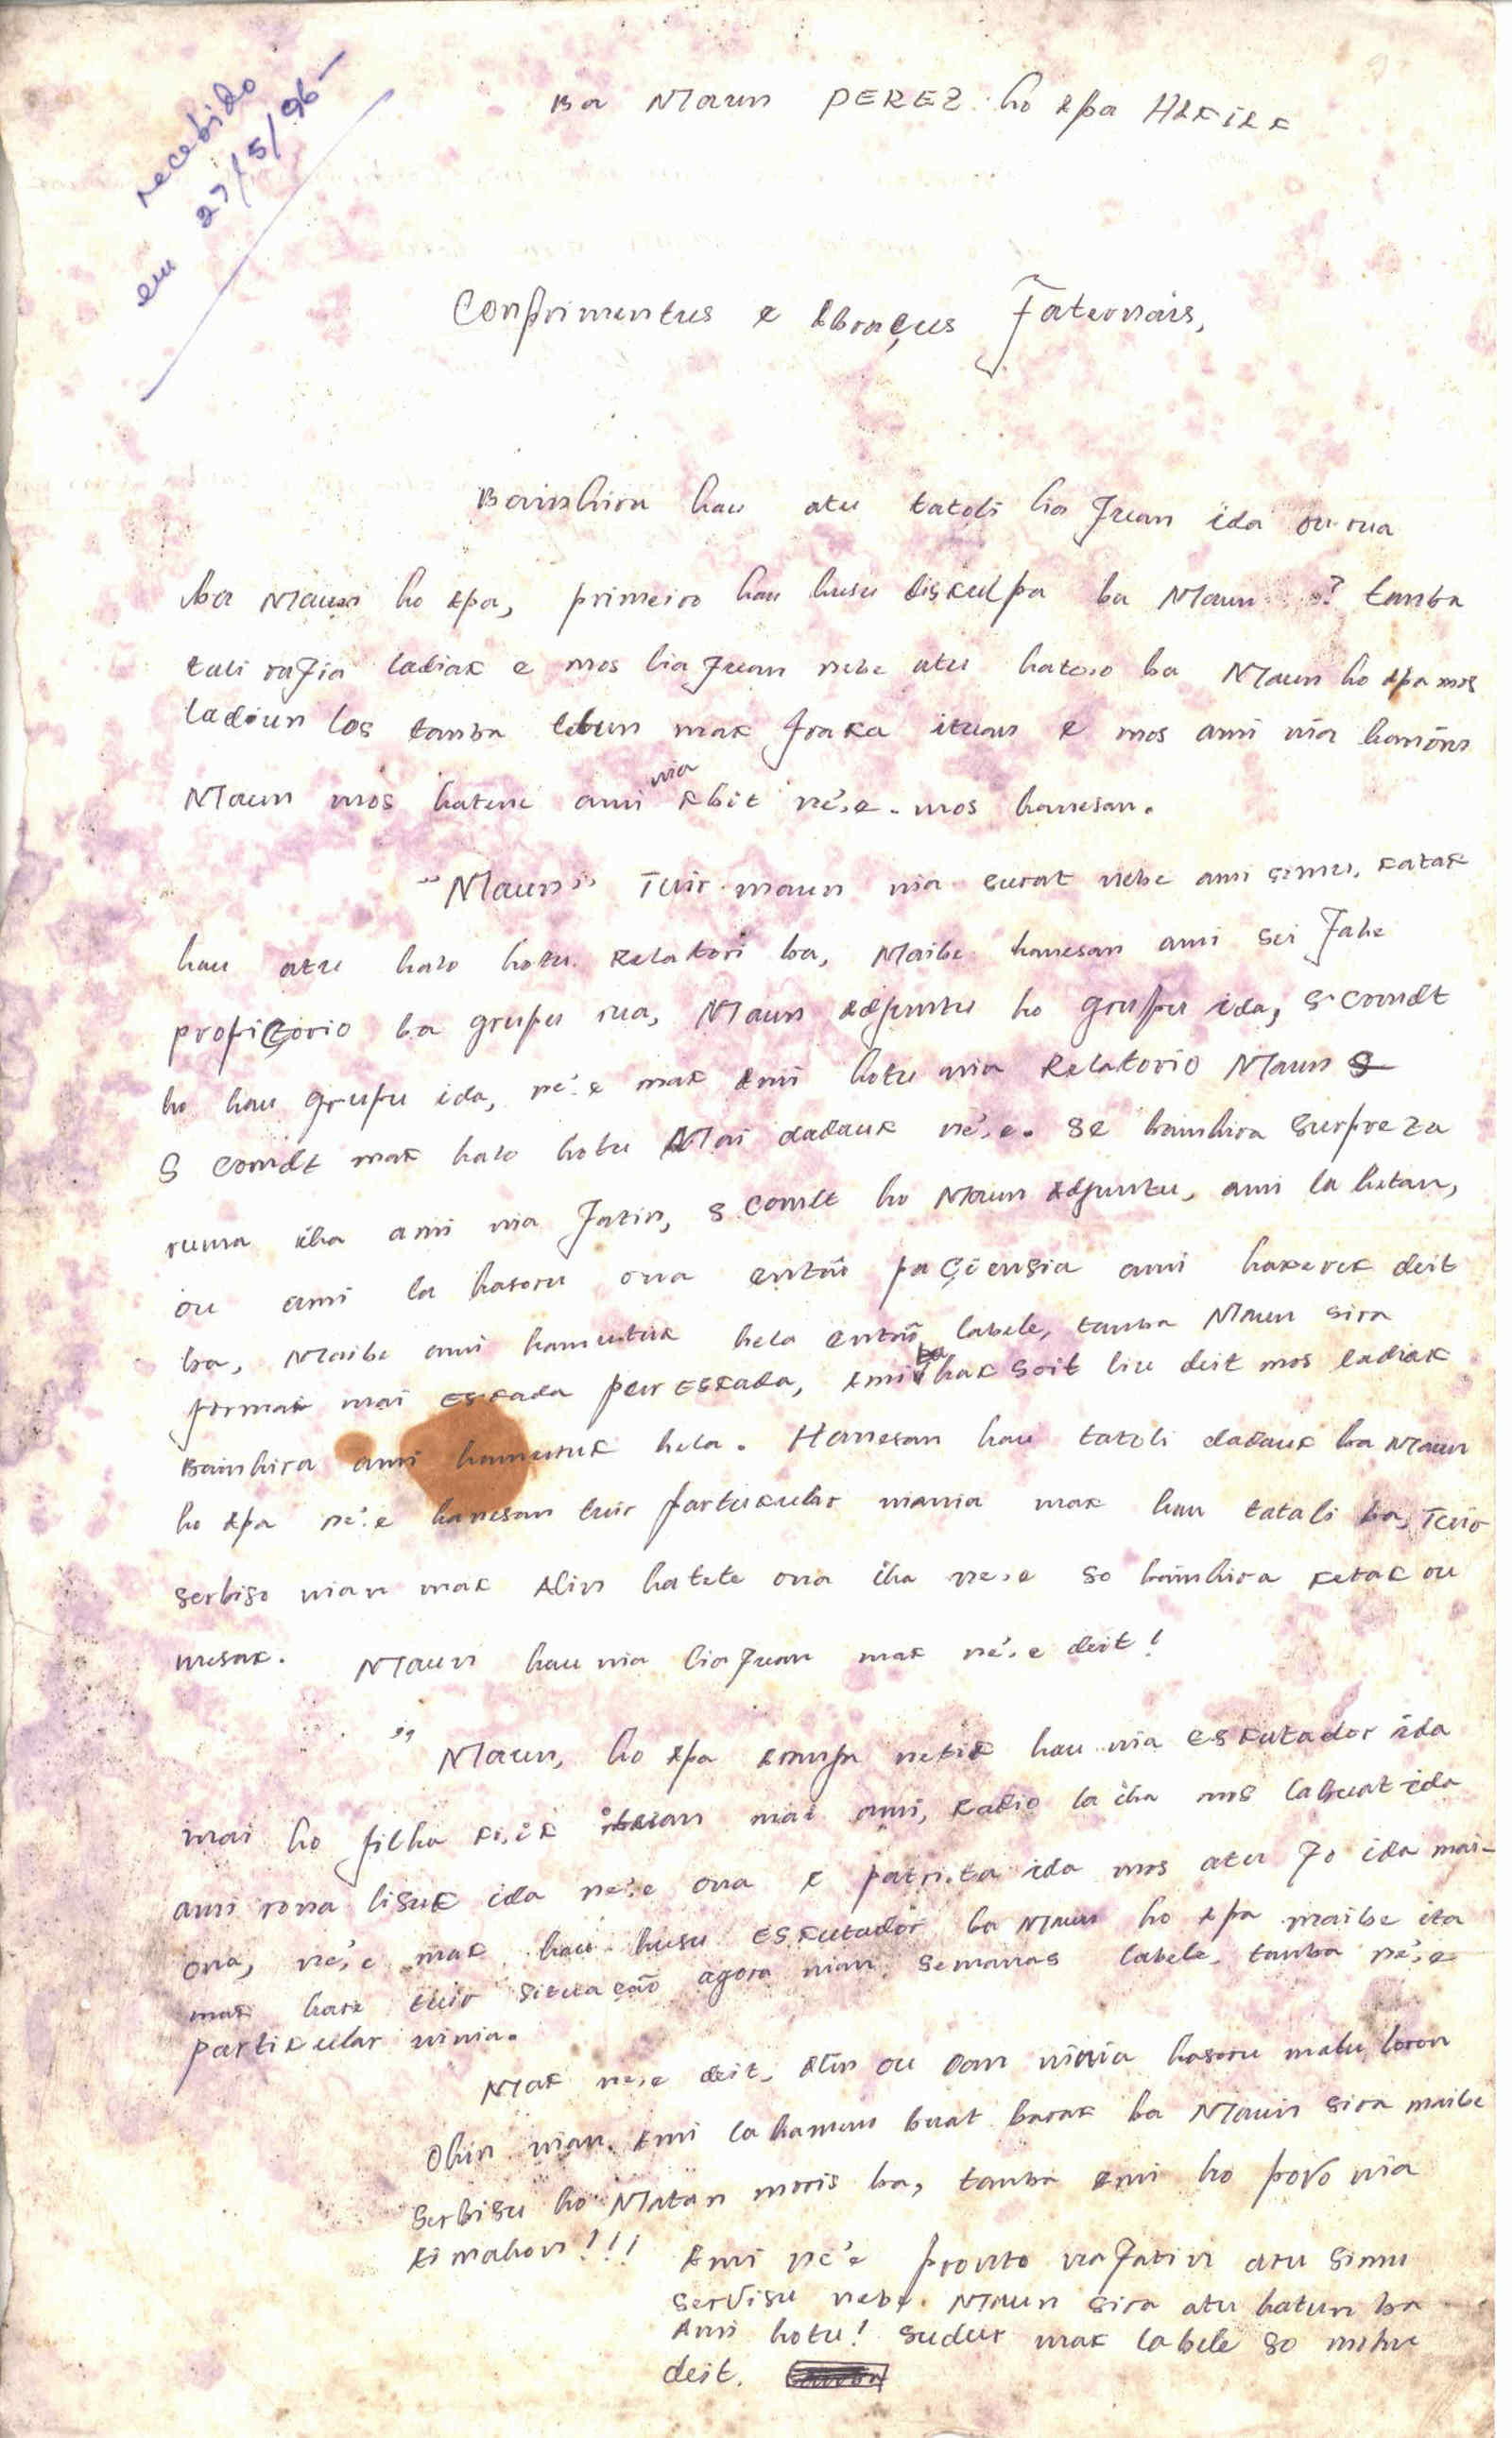 recebido
em 27/5/96-
Ba Maun PEREZ ho Apa HAKILK
Conprimentus e Abraçus Faternais,
Bainhira hau atu tatoli lia Fuan ida ou rua
ba Maun ho Apa, primeiro hau husu diskulpa ba Maun ? tanba
tali rafia ladiak e mos lia Fuan nebe atu hatoo ba Maun ho Apa mos
ladiun los tanba ulun mak fraka ituan e mos ami nia hanoin
Maun mos hatene ami nia Abit ne'e. mos hanesan.
"Maun" Tuir maun nia surat nebe ami simu, katak
hau atu halo hotu Relatori ba, Maibe hanesan ami sei Fahe
propiçorio ba grupu rua, Maun Adjuntu ho grupu ida, S. comdt
ho hau grupu ida, ne'e mak Ami hotu nia Relatorio Maun
S comdt mak halo hotu Mai dadauk ne'e. Se bainhira Surpreza
ruma iha ami nia Fatin, S. comdt ho Maun Adjuntu, ami la hetan,
ou ami la hasoru ona entaũ paçiensia ami hakerek deit
ba, Maibe ami hamutuk hela entaũ labele, tanba Maun sira
formak mai Eskada pur Eskada, Ami ba hakSoit liu deit mos ladiak
Bainhira ami hamutuk hela. Hanesan hau tatoli dadauk ba Maun
ho Apa ne'e hanesan tuir partukular niania mak hau tatali ba, Tuir
serbiso nian mak Alin hatete ona iha ne'e so bainhira ketak ou
mesak. Maun hau nia lia Fuan mak ne'e deit!
" Maun, ho Apa hau nia eskutador ida
mai ho pilha ki'ik ituan mai ami, Radio la iha mos labuat ida
ami rona lisuk ida ne'e ona e patri.ta ida mos atu Fo ida mai-
ona, ne'e mak hau husu Eskutador ba Maun ho Apa maibe ita
mak hare tuir situação agora nian semanas labele, tanba ne'e
partikular ninia.
Mak ne'e deit, Alin ou Oan ninia hasoru malu loron
Ohin nian. Ami la hamun buat barak ba Maun sira maibe
Serbisu ho Matan moris ba, tanba Ami ho povo nia
Ki mahon!!!
Ami ne'e pronto nafatin atu simu
servisu nebe Maun sira atu hatun ba
Ami hotu! Sudur mak labele so mehi
deit.